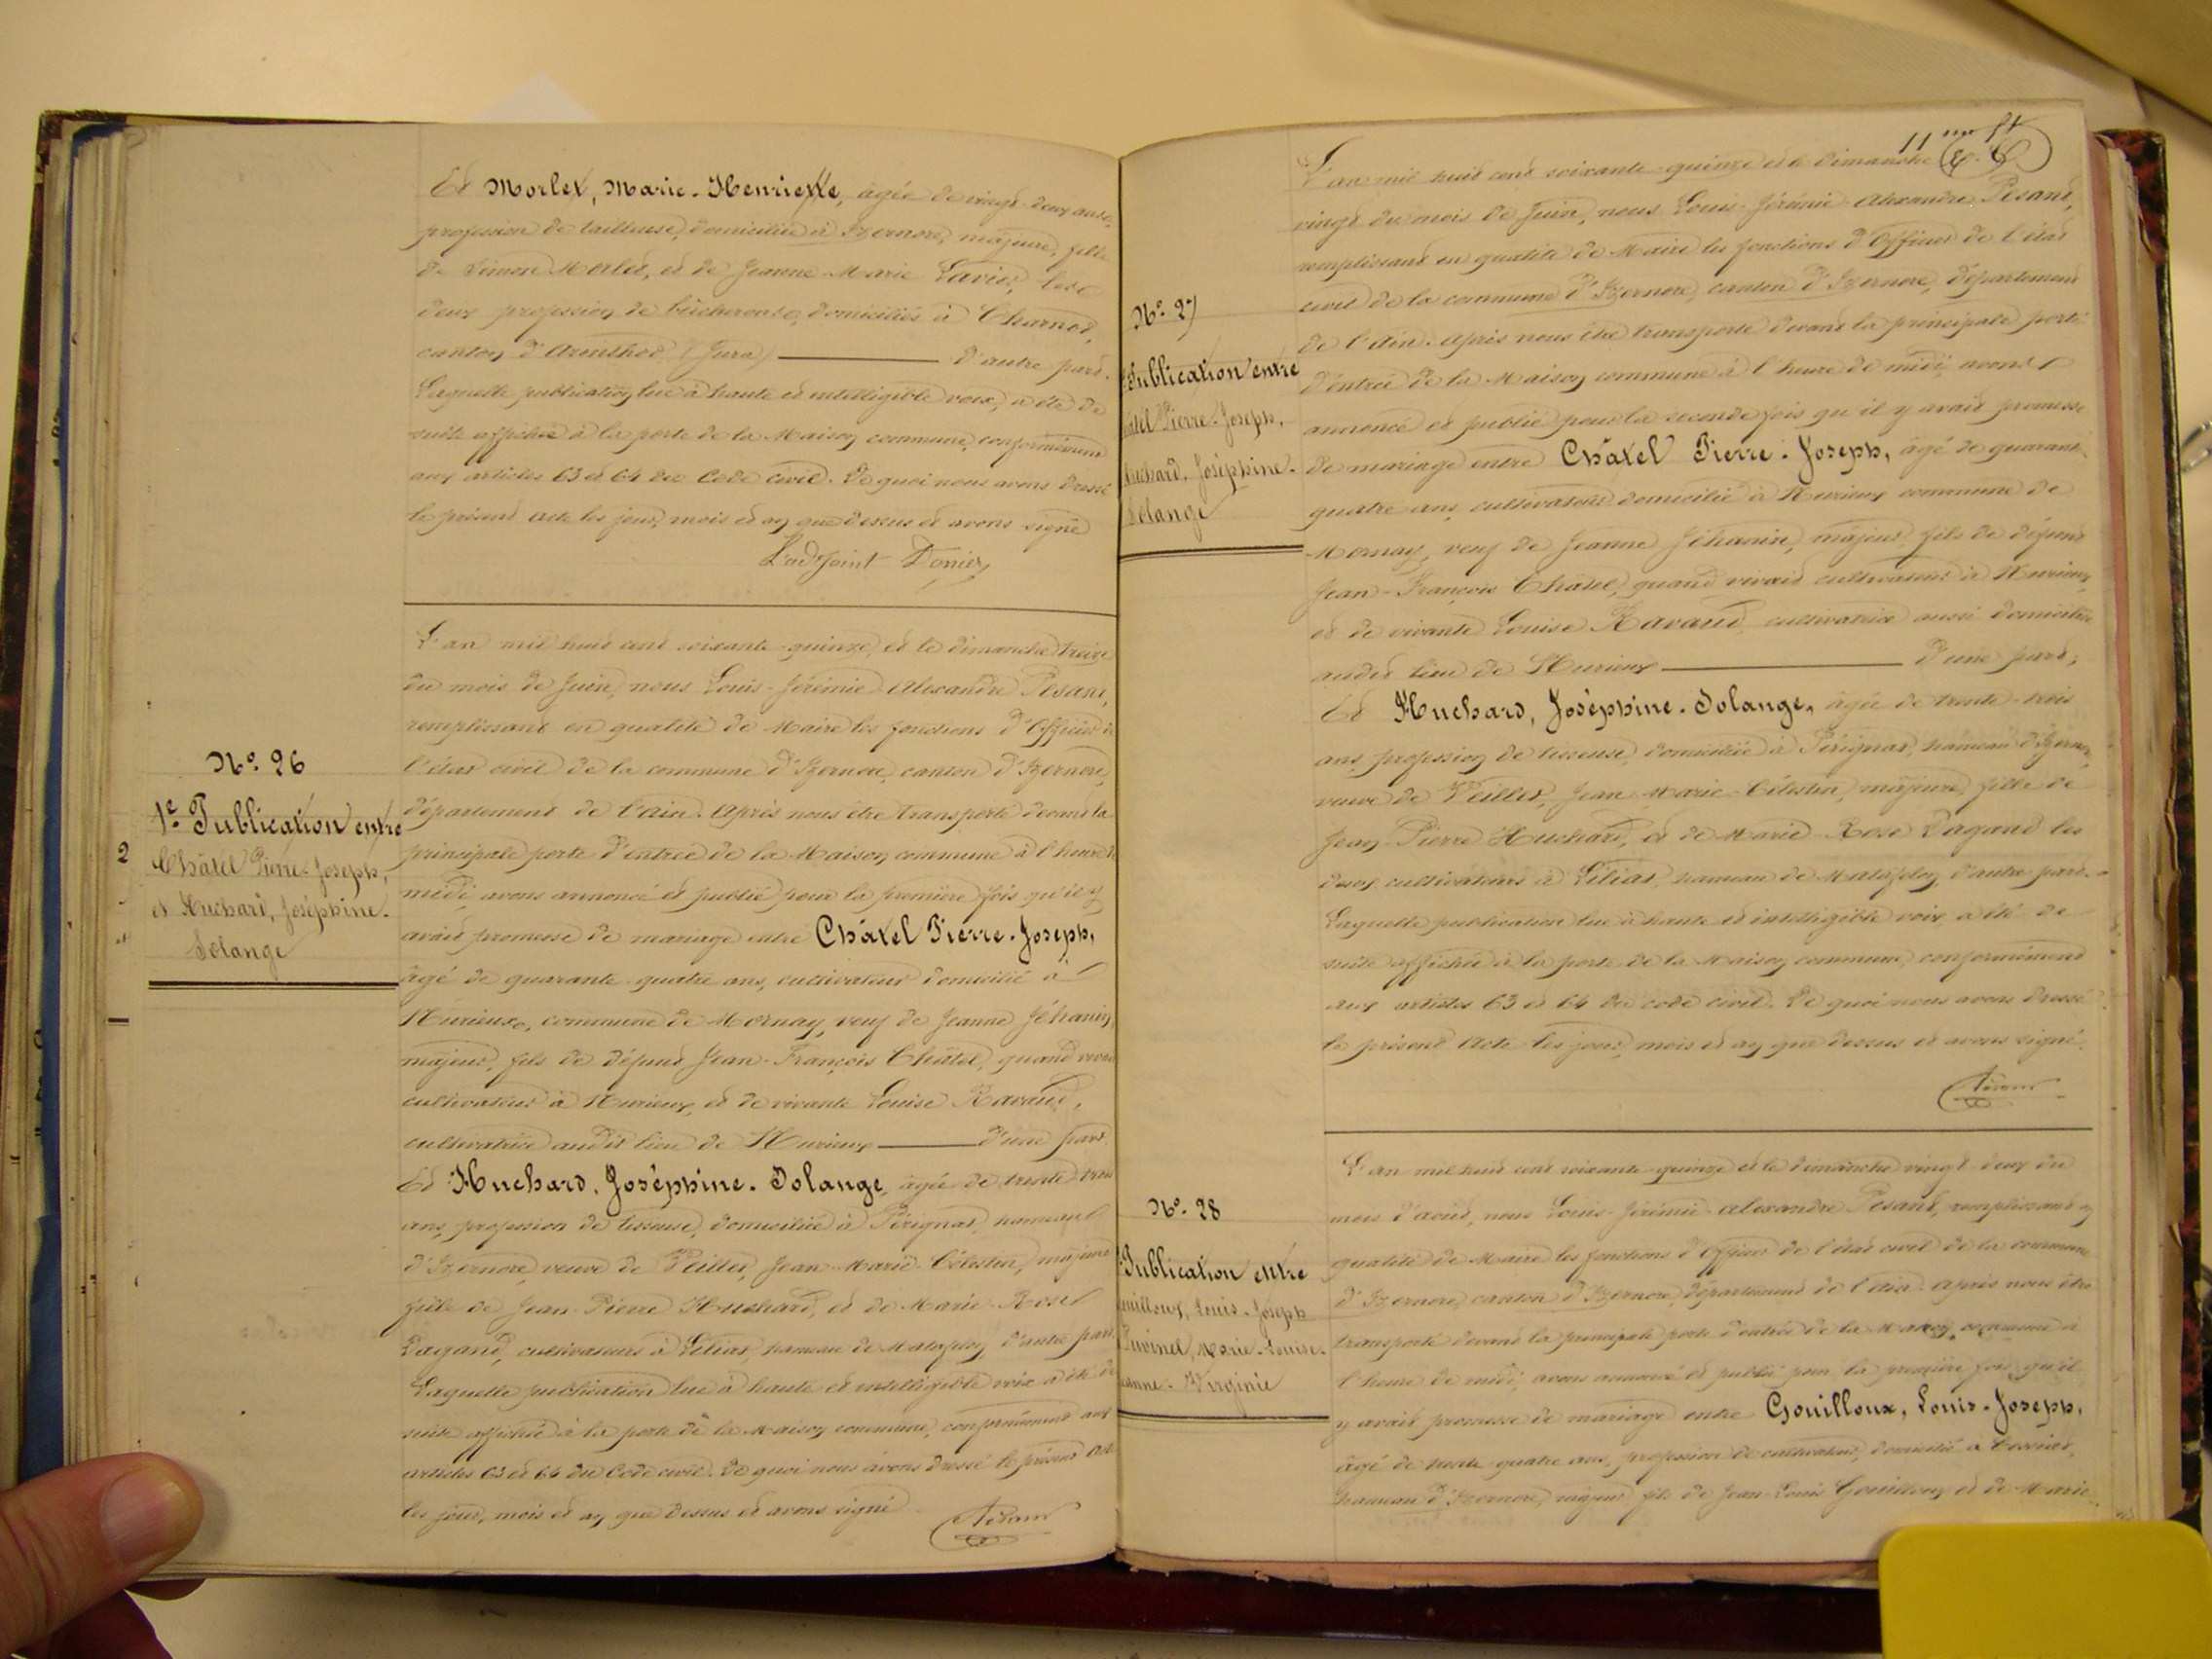 Et Morlet, Marie-Henriette, âgée de vingt-deux ans,
profession de tailleuse, domiciliée à Izernore, majeure, fille
de Simon Morlet, et de Jeanne-Marie Lavier, les
deux profession de bûcherons, domiciliés à Charnod,
canton d'Arinthod, (Jura) d'autre part.
Laquelle publication, lue à haute et intelligible voix, a été de
suite affichée à la porte de la Maison commune, conformément
aux articles 63 et 64 du Code civil. De quoi nous avons dressé
le présent acte les jour, mois et an que dessus et avons signé
L'adjoint
N° 26
1e Publication entre
Châtel Pierre-Joseph,
et Huchard, Joséphine-
Solange
2
L'an mil huit cent soixante-quinze, et le dimanche treize
du mois de Juin, nous Louis-Jérémie-Alexandre Pesant,
remplissant en qualité de Maire les fonctions d'Officier de
l'état civil de la commune d'Izernore, canton d'Izernore,
département de l'Ain. Après nous être transporté devant la
principale porte d'entrée de la Maison commune à l'heure de
midi, avons annoncé et publié pour la première fois qu'il y
avait promesse de mariage entre Châtel Pierre-Joseph,
âgé de quarante-quatre ans, cultivateur domicilié à
Nurieux, commune de Mornay, veuf de Jeanne Jéhanin,
majeur, fils de défunt Jean-François Châtel, quand vivait
cultivateur à Nurieux, et de vivante Louise Ravaud,
cultivatrice audit lieu de Nurieux d'une part.
Et Huchard, Joséphine-Solange, âgée de trente-trois
ans, profession de tisseuse, domiciliée à Pérignat, hameau
d'Izernore, veuve de Peillet, Jean-Marie-Célestin, majeure
fille de Jean-Pierre Huchard, et de Marie-Rose
Dagand, cultivateurs à Lilias, hameau de Matafelon, d'autre part.
Laquelle publication lue à haute et intelligible voix a été de
suite affichée à la porte de la Maison commune, conformément aux
articles 63 et 64 du Code civil. De quoi nous avons dressé le présent acte
les jour, mois et an que dessus et avons signé
Pesant
11me ft
N° 27
Publication entre
âtel Pierre-Joseph,
uchard, Joséphine-
Solange
L'an mil huit cent soixante-quinze et le dimanche
vingt du mois de Juin, nous Louis-Jérémie-Alexandre Pesant,
remplissant en qualité de Maire les fonctions d'Officier de l'état
civil de la commune d'Izernore, canton d'Izernore, département
de l'Ain. Après nous être transporté devant la principale porte
d'entrée de la Maison commune à l'heure de midi, avons
annoncé et publié pour la seconde fois qu'il y avait promesse
de mariage entre Châtel Pierre-Joseph, âgé de quarante-
quatre ans, cultivateur domicilié à Nurieux commune de
Mornay, veuf de Jeanne Jéhanin, majeur, fils de défunt
Jean-François Châtel, quand vivait cultivateur à Nurieux,
et de vivante Louise Ravaud, cultivatrice aussi domiciliée
audit lieu de Nurieux d'une part;
Et Huchard, Joséphine-Solange, âgée de trente-trois
ans, profession de tisseuse, domiciliée à Pérignat, hameau d'Izernore,
veuve de Peillet, Jean-Marie-Célestin, majeure, fille de
Jean-Pierre Huchard, et de Marie-Rose Dagand les
deux cultivateurs à Lilias, hameau de Matafelon, d'autre part.
Laquelle publication lue à haute et intelligible voix, a été de
suite affichée à la porte de la Maison commune, conformément
aux articles 63 et 64 du code civil. De quoi nous avons dressé
le présent Acte les jour, mois et an que dessus et avons signé.
Pesant
N° 28
Publication entre
ouilloux, Louis-Joseph
Marie-Louise-
eanne-Virginie
L'an mil huit cent soixante-quinze et le dimanche vingt-deux du
mois d'août, nous Louis-Jérémie-Alexandre Pesant, remplissant en
qualité de Maire les fonctions d'Officier de l'état civil de la commune
d'Izernore, canton d'Izernore, département de l'Ain. Après nous être
transporté devant la principale porte d'entrée de la Maison commune à
l'heure de midi, avons annoncé et publié pour la première fois qu'il
y avait promesse de mariage entre Gouilloux, Louis-Joseph,
âgé de trente-quatre ans, profession de cultivateur, domicilié à
hameau d'Izernore, majeur, fils de Jean-Louis Gouilloux et de Marie